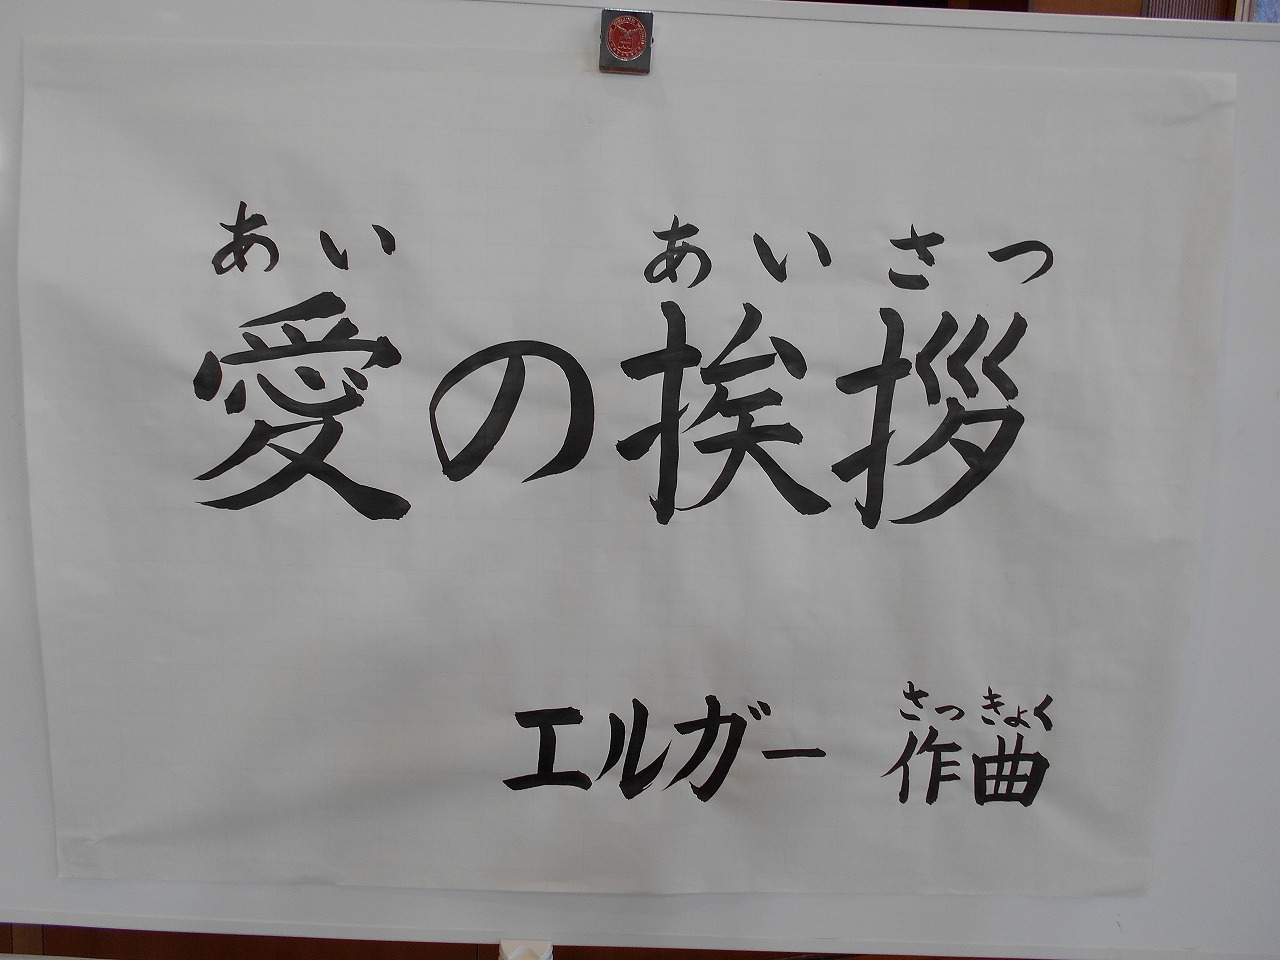 あい あいさつ
愛の挨拶
さっきょく
エルガー 作曲